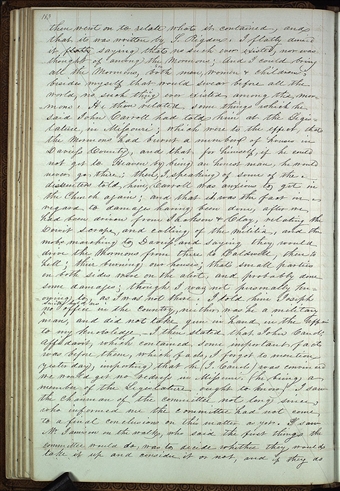 then went on to relate what it contained, and
that it was written by S. Rigdon. I flatly denied
it flatly, saying that no such ever existed, nor was
thought of among the Mormons; And I could bring
all the Mormons, both men, women & children;
besides myself that would swear before all the
world, no such thing ever existed among the mor-
mons. He then related some things which he
said John Carroll had told him at the Legis-
lature, in Missouri; which were to the effect, that
the Mormons had burnt a number of houses in
Daviess County, and that, for himself, if he could
not get to Heaven by being an honest man, he would
never go there; then, (speaking of some of the
dissenters told him, Carroll was anxious to get in
the Church again; and that shows the fact in
regard to damages having been done, after we
had been driven from & Clay, relating the
Dewit scrape, and calling of the militia, and the
mob marching to Daviess and saying they would
drive the Mormons from there to Caldwell, then to
hell; their burning our houses; that small parties
on both sides were on the alert, and probably done
some damages; though I was not personally
to, as I was not there. I told him Joseph
Smith held no office in the country, neither was he a military
man, and did not take gun in hand, in the
to my knowledge. I then stated that John
affidavit, which contained some important facts
was before them, which fact, I forgot to mention
yesterday, imparting that he (J. Carroll) was convinced
we would get no redress in Missouri. He being a
member of the Legislature ought to know. I saw
the chairman of the committee not long since,
who informed me the committee had not come
to a final conclusion on this matter as yet. I saw
Mr. Jameson in the walks, who said the first thing the
committee would do, was to decide whether they would
take it up and consider it or not, and if they do